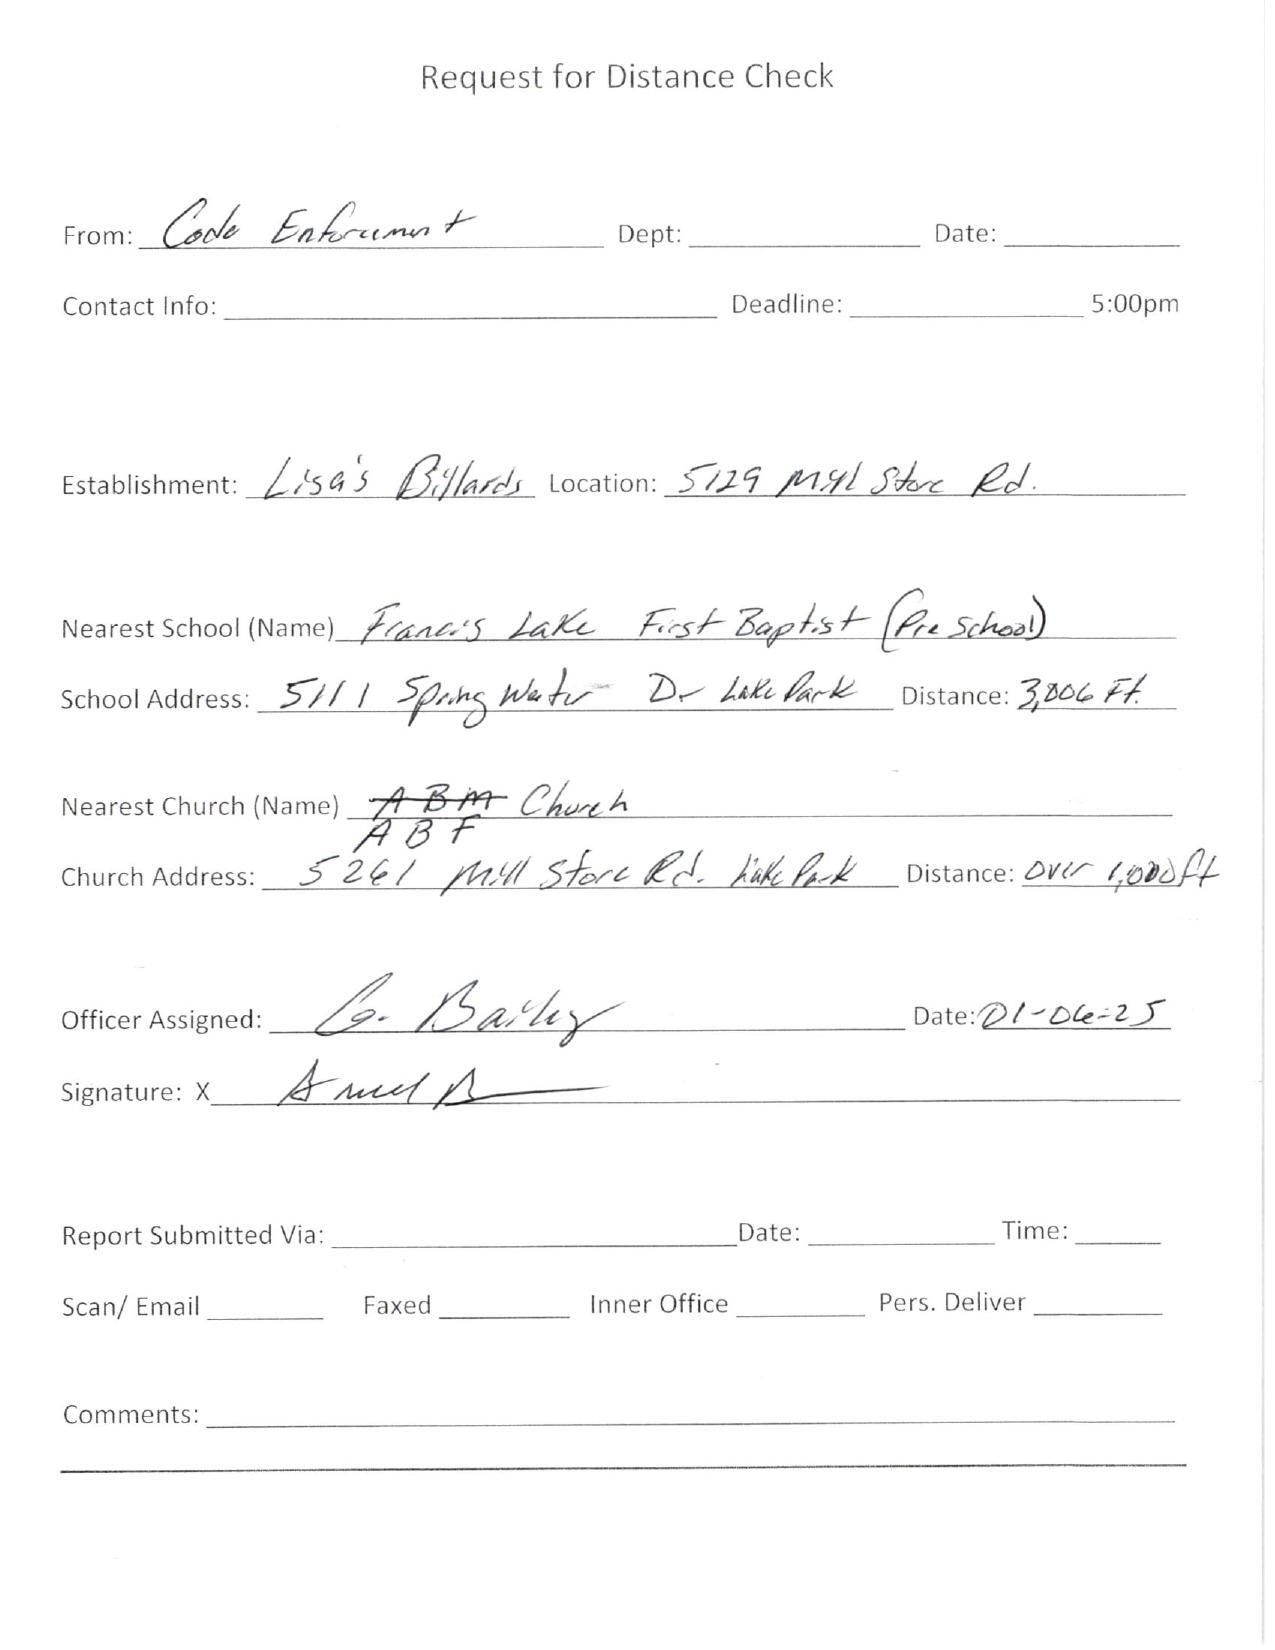 Request for Distance Check
From: Code Enforcement Dept: Date:
Contact Info: Deadline: 5:00pm
Establishment: Lisa's Billards Location: 5129 Mill Store Rd.
Nearest School (Name) Francis Lake First Baptist (Pre School)
School Address: 5111 Spring Water Dr Lake Park Distance: 3,006 Ft.
Nearest Church (Name) ABM Church
ABF
Church Address: 5261 Mill Store Rd. Lake Park Distance: Over 1,000 ft
Officer Assigned: G. Bailey Date: 01-06-25
Signature: X
Report Submitted Via: Date: Time:
Scan/ Email Faxed Inner Office Pers. Deliver
Comments: